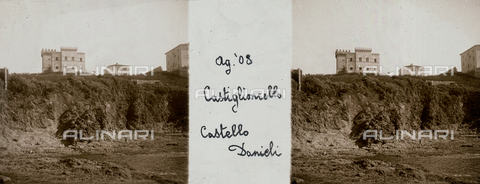 Ag. '08
Castiglioncello
Castello
Danieli
ALINARI
ALINARI
ALINARI
ALINARI
ALINARI